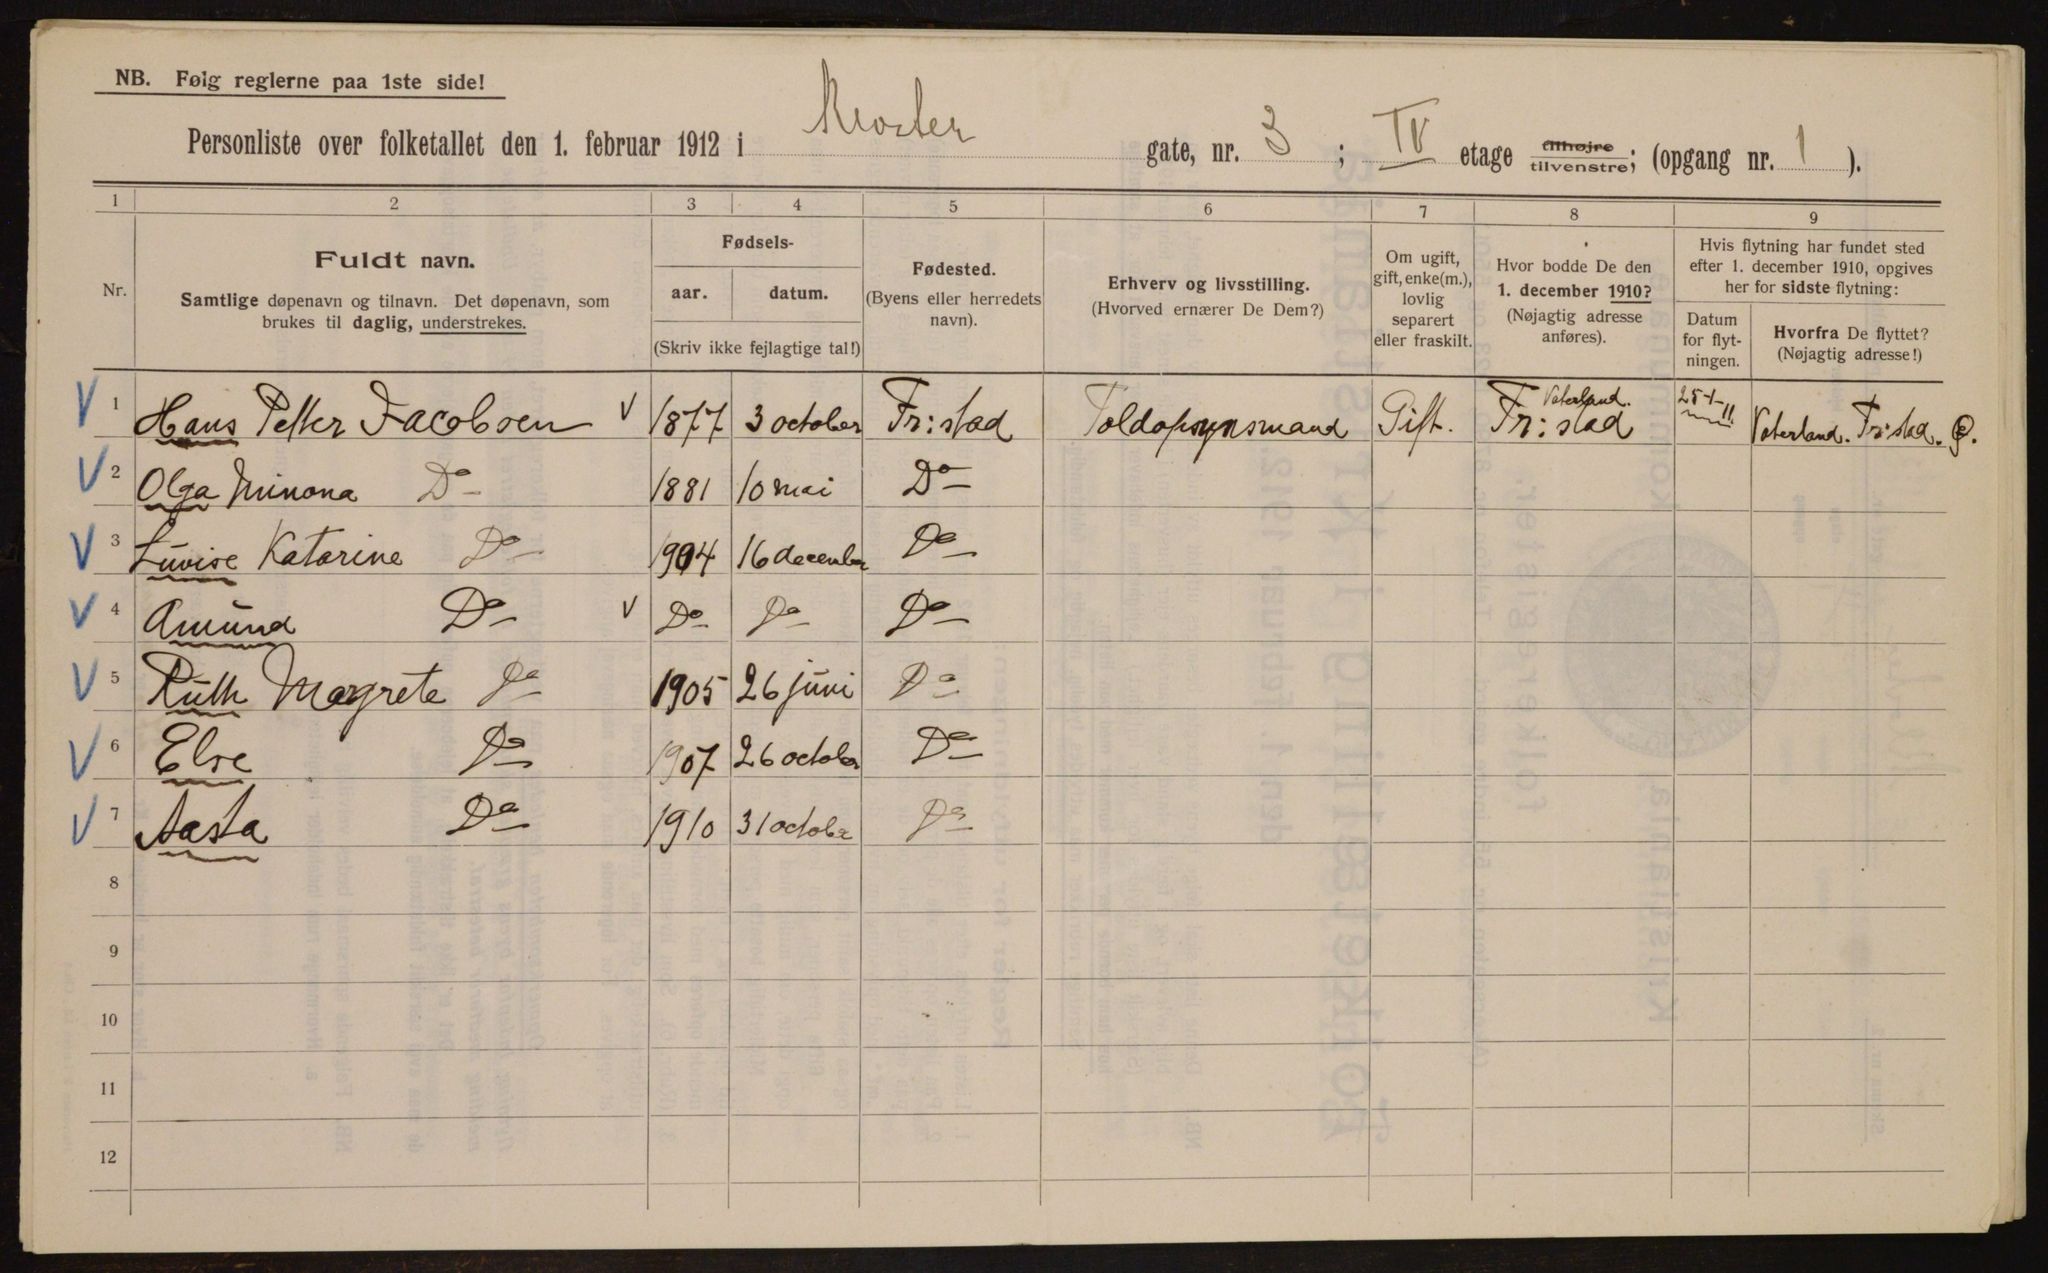 NB. Følg reglerne paa 1ste side!
Personliste over folketallet den 1. februar 1912 i Kloster gate, nr. 3 ; IV etage tilhøjre tilvenstre; (opgang nr. 1 ).
1 2 3 4 5 6 7 8 9
Nr.
Fuldt navn.
Samtlige døpenavn og tilnavn. Det døpenavn, som
brukes til daglig, understrekes.
Fødsels-
aar. datum.
(Skriv ikke fejlagtige tal!)
Fødested.
(Byens eller herredets
navn).
Erhverv og livsstilling.
(Hvorved ernærer De Dem?)
Om ugift,
gift, enke(m.),
lovlig
separert
eller fraskilt.
Hvor bodde De den
1. december 1910?
(Nøjagtig adresse
anføres).
Hvis flytning har fundet sted
efter 1. december 1910, opgives
her for sidste flytning:
Datum
for flyt-
ningen.
Hvorfra De flyttet?
(Nøjagtig adresse!)
V 1 Hans Petter Jacobsen V 1877 3 october Fr:stad Toldopsynsmand Gift. Vaterland. Fr:stad Vaterland. Fr:stad.
V 2 Olga Minona Do 1881 10 mai Do
V 3 Luvise Katarine Do 1904 16 december Do
V 4 Amund Do V Do Do Do
V 5 Ruth Magrete Do 1905 26 juni Do
V 6 Else Do 1907 26 october Do
V 7 Aasta Do 1910 31 october Do
8
9
10
11
12